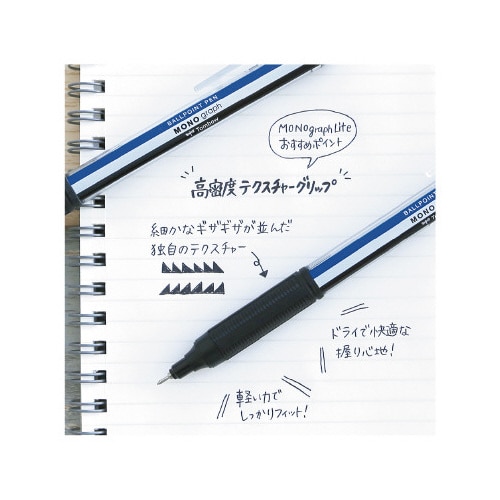 BALLPOINT PEN
MONO graph
Tombow
MONOgraphLite
おすすめポイント
高密度テクスチャーグリップ
細かなギザギザが並んだ
独自のテクスチャー
BALLPOINT PEN
MONO
ドライで快適な
握り心地!
軽い力で
しっかりフィット!